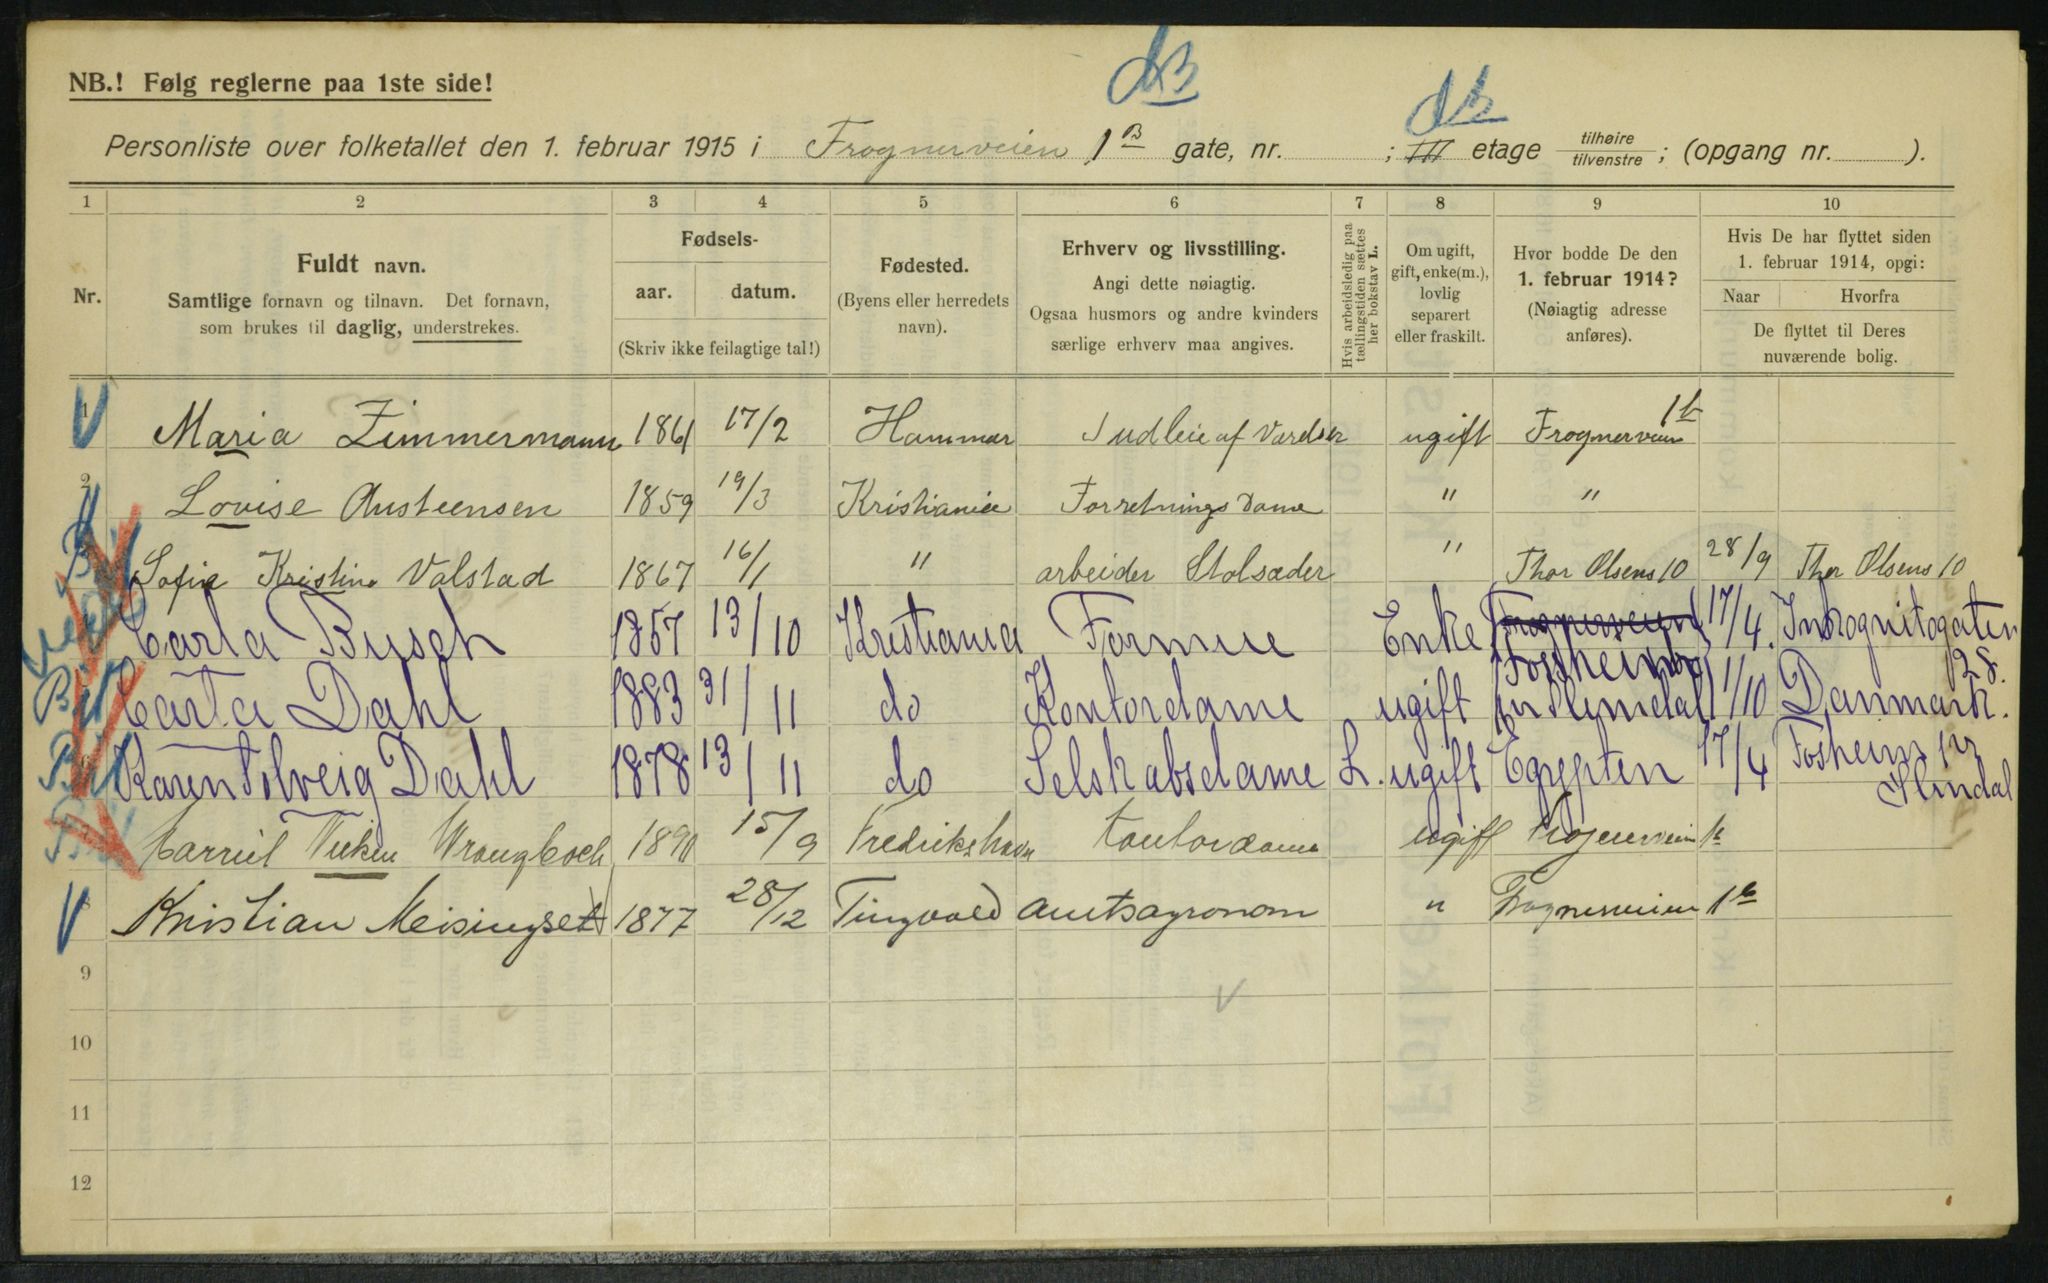 NB.! Følg reglerne paa 1ste side!
Personliste over folketallet den 1. februar 1915 i Frognerveien 1 B gate, nr. ; III etage tilhøire / tilvenstre ; (opgang nr. ).
1 2 3 4 5 6 7 8 9 10
Nr. Fuldt navn. Samtlige fornavn og tilnavn. Det fornavn, som brukes til daglig, understrekes.
Fødsels- aar. datum. (Skriv ikke feilagtige tal!)
Fødested. (Byens eller herredets navn).
Erhverv og livsstilling. Angi dette nøiagtig. Ogsaa husmors og andre kvinders særlige erhverv maa angives.
Hvis arbeidsledig paa tællingstiden sættes her bokstav L.
Om ugift, gift, enke(m.), lovlig separert eller fraskilt.
Hvor bodde De den 1. februar 1914? (Nøiagtig adresse anføres).
Hvis De har flyttet siden 1. februar 1914, opgi: Naar Hvorfra De flyttet til Deres nuværende bolig.
1 Maria Zimmermann 1861 17/2 Hammar Udleie af Værelser ugift Frognerveien 1b
2 Lovise Austeensen 1859 19/3 Kristiania Forretnings Dame " "
Sofie Kristine Valstad 1867 16/1 " arbeider Stolsæder " Thor Olsens 10 28/9 Thor Olsens 10
Carla Busch 1857 13/10 Kristiania Formue Enke Frognerveien 17/4. Inkognitogaten 28.
Carla Dahl 1883 31/11 do Kontordame ugift Fossheim pr Slemdal 1/10 Danmark.
Karen Solveig Dahl 1878 13/11 do Selskabsdame L. ugift Egypten 17/4 Fosheim pr Slemdal
Vicken 1890 15/9 Fredrikshavn Kontordame ugift Frognerveien 1b
8 Kristian Meisingset 1877 28/12 Tingvold amtsagronom " Frognerveien 1b
9
10
11
12